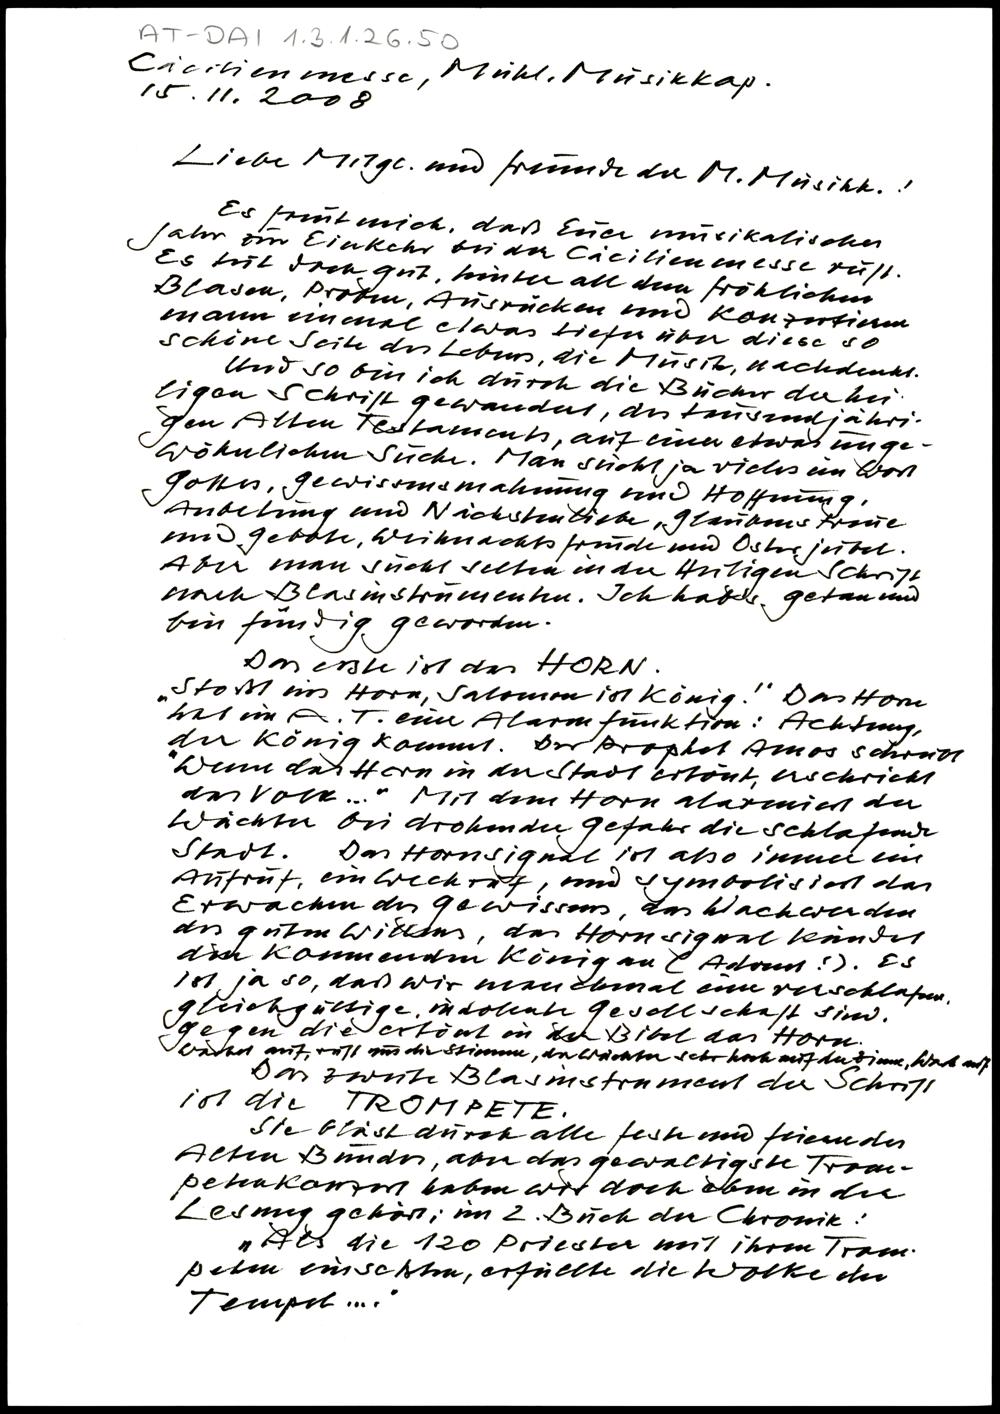 AT-DAI 1.3.1.26.50
Cäcilienmesse, Mühl. Musikkap.
15.11.2008
Liebe Mitgl. und Freunde der M. Musikk.!
Es freut mich, daß Euer musikalisches
Jahr zur Einkehr bei der Cäcilienmesse ruft.
Es tut doch gut, hinter all dem fröhlichen
Blasen, Proben, Ausrücken und Konzertieren
einmal etwas tiefer über diese so
schöne Seite des Lebens, die Musik, nachdenkt.
Und so bin ich durch die Bücher der hei-
ligen Schrift gewandert, des tausendjähri-
gen Alten Testaments, auf einer etwas unge-
wöhnlichen Suche. Man sucht ja vieles im Wort
Gottes, Gewissensmahnung und Hoffnung,
Anbetung und Nächstenliebe, Glaubenstreue
und Gebote, Weihnachtsfreude und Osterjubel.
Aber man sucht selten in der Heiligen Schrift
nach Blasinstrumenten. Ich habs getan und
bin fündig geworden.
Das erste ist das HORN.
„Stoßt ins Horn, Salomon ist König!" Das Horn
hat im A.T. eine Alarmfunktion: Achtung,
der König kommt. Der Prophet Amos schreibt
"Wenn das Horn in der Stadt ertönt, erschrickt
das Volk..." Mit dem Horn alarmiert der
Wächter bei drohender Gefahr die schlafende
Stadt. Das Hornsignal ist also immer ein
Aufruf, ein Weckruf, und symbolisiert das
Erwachen des Gewissens, das Wachwerden
des guten Willens, das Hornsignal kündet
den kommenden König an (Advent!). Es
ist ja so, daß wir manchmal eine verschlafene,
gleichgültige, indolente Gesellschaft sind.
Gegen die ertönt in der Bibel das Horn.
Wachet auf, ruft uns die Stimme, der Wächter sehr hoch auf der Zinne, Wach auf
Das zweite Blasinstrument der Schrift
ist die TROMPETE.
Sie bläst durch alle Feste und Feiern des
Alten Bundes, aber das gewaltigste Trom-
petenkonzert haben wir doch eben in der
Lesung gehört; im 2. Buch der Chronik:
„Als die 120 Priester mit ihren Trom-
peten einsetzten, erfüllte die Wolke den
Tempel...."